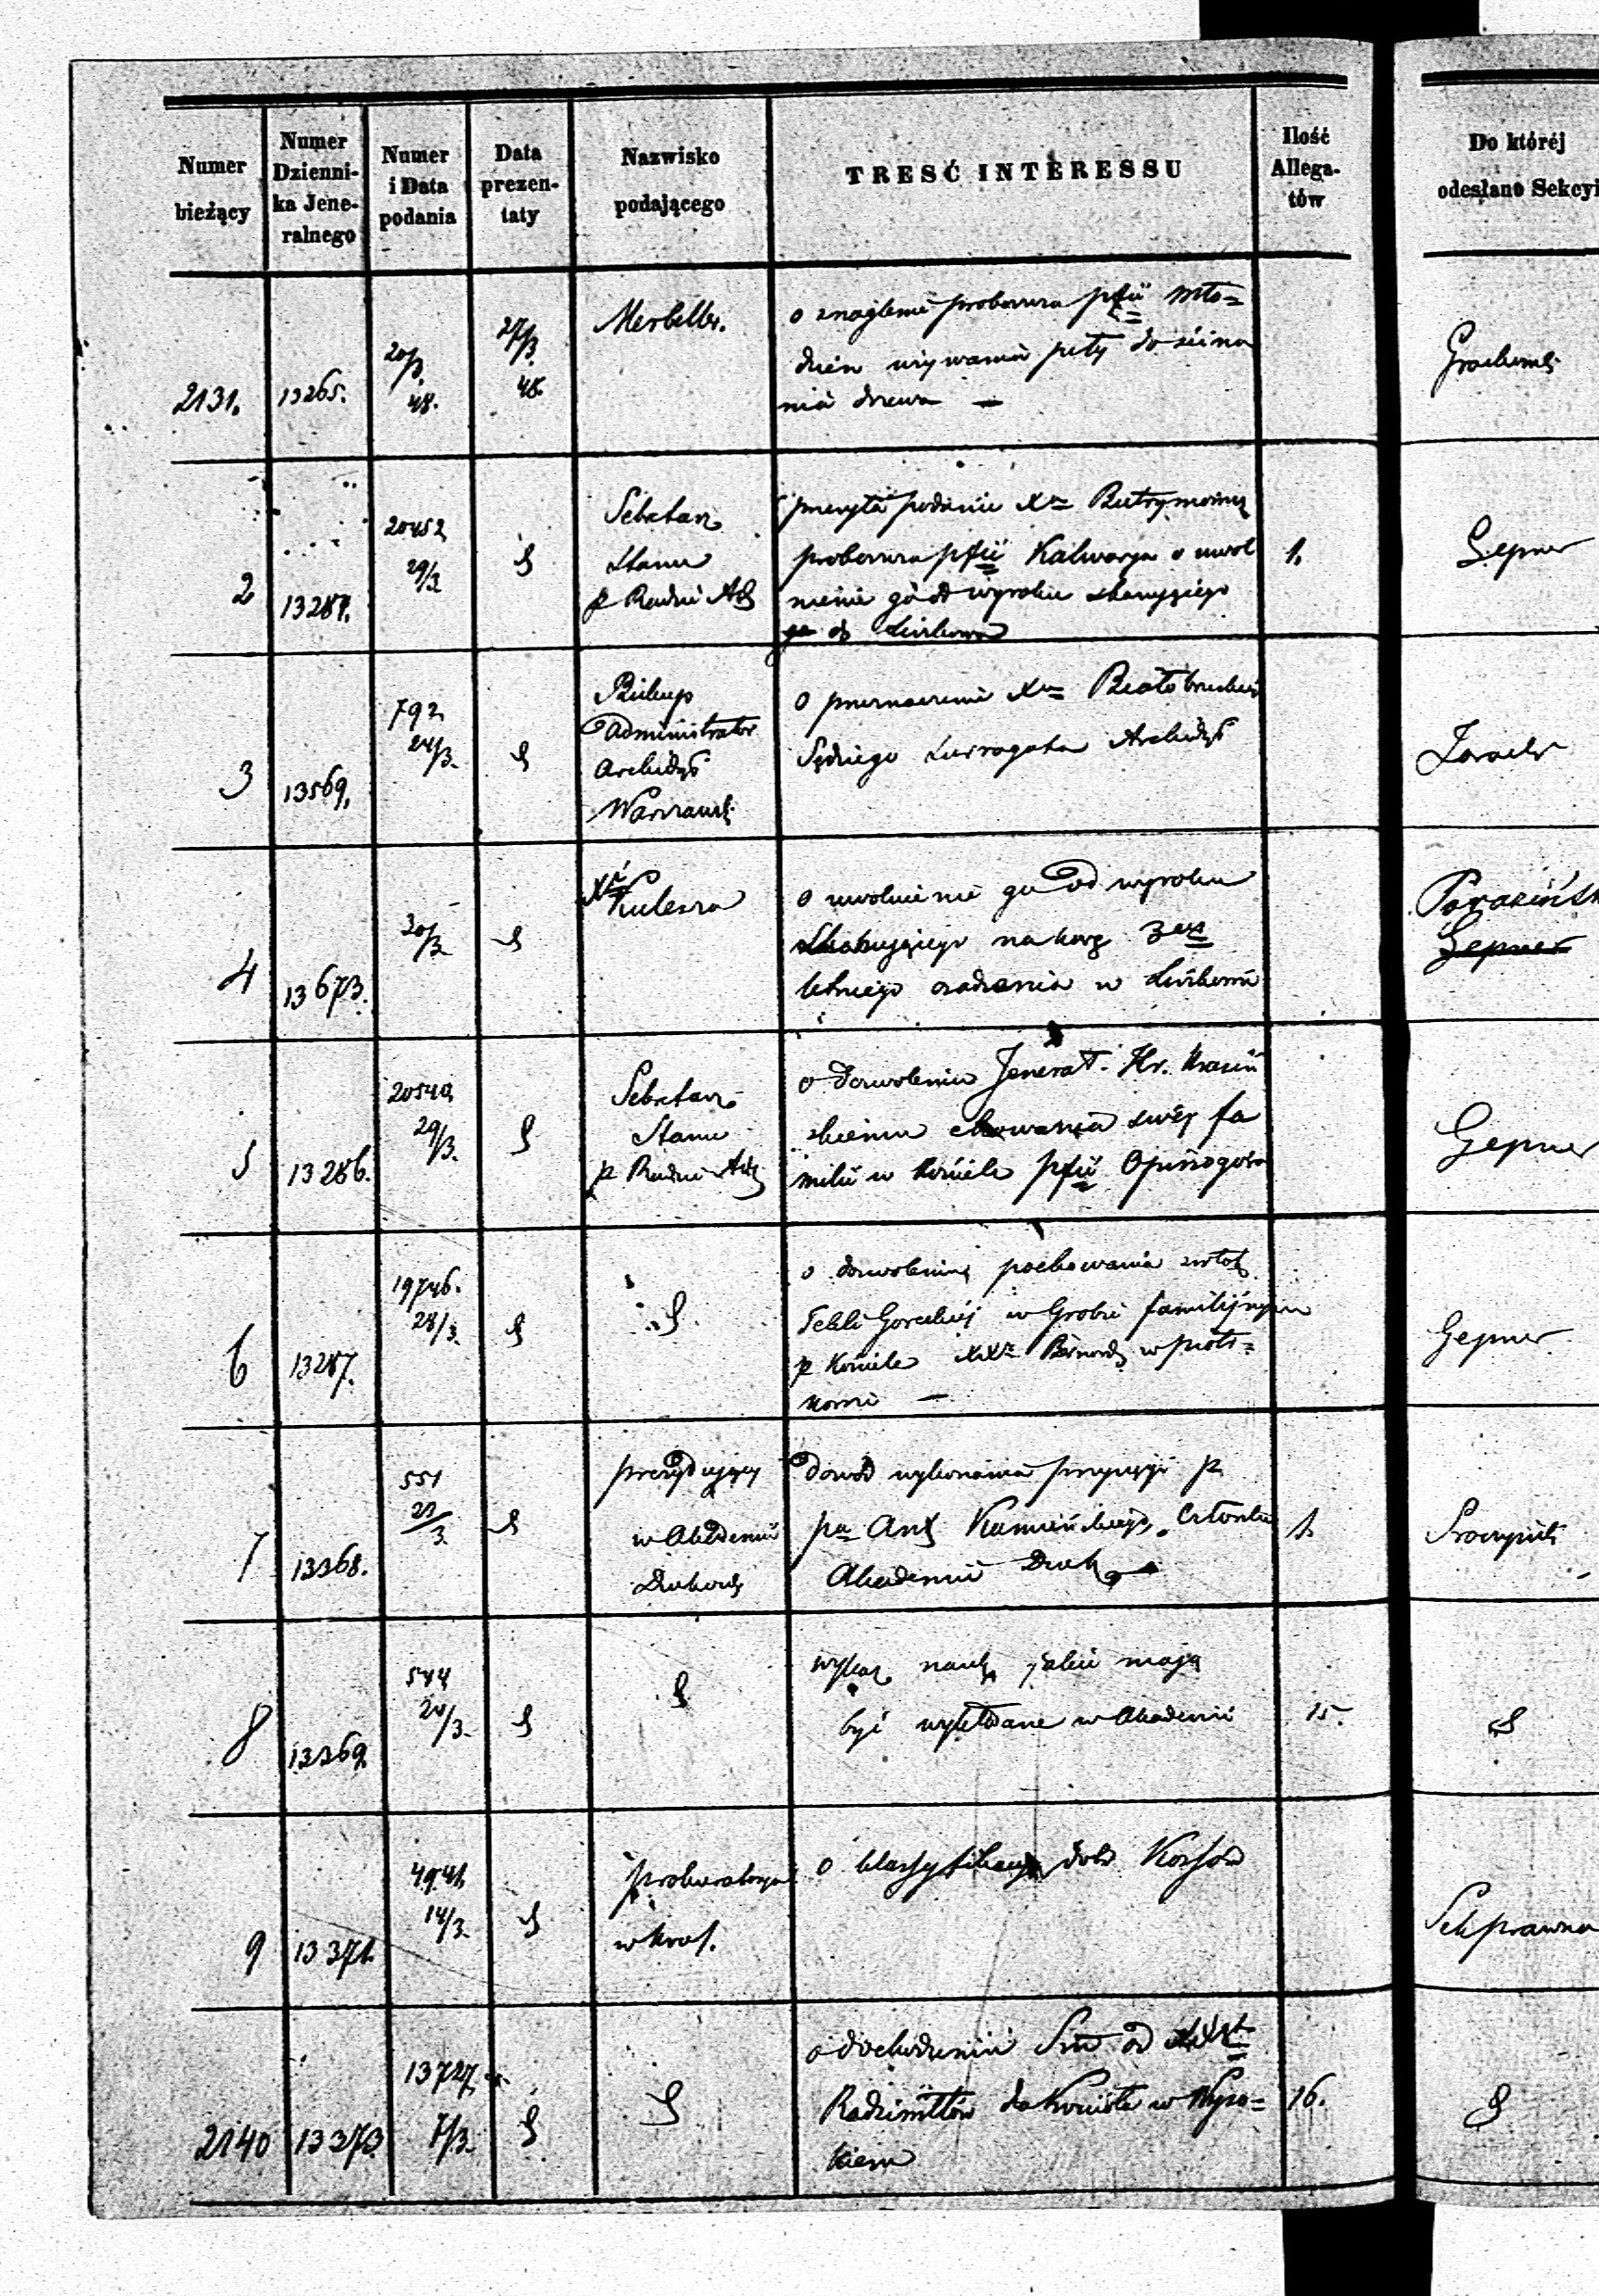 Numer bieżący
Numer Dzienni-ka Jene-ralnego
Numer i Data podania
Data prezen-taty
Nazwisko podającego
TRESĆ INTERESSU
Ilość Allega-tów
Do którój odesłano Sekcyi
2131.
13265.
20/3.
48.
27/3.
48.
o znaglenie proboszcza pfii Mło=
dzien używania piły do ścina
nia drzewa —
2
13281.
20452
29/3
Sekretarz
Stanu
p Radzie Ad
proboszcza pfii Kalwarya o uwol
nienie go od wyroku skazującego
1.
Gepner
3
13569.
792
24/3.
Biskup
Administrator
Archidyec
Warszawsk
o przeznaczeniu Xa
Sędziego Surrogata Archidyec
4
13673.
30/3
Xa
Kulesza
o uwolnienie go od wyroku
skazującego na karę 3ech
letniego osadzenia w
Gepner
5
13286.
20540
29/3.
Sekretarz
Stanu
p Radzie Ad
o dozwoleniu Jenerał. Hr. Krasiń
skiemu chowania swéj fa
milii w kościele pfii Opinogóra
Gepner
6
13287.
19746.
28/3.
o dozwoleniu pochowania zwłok
Tekli Goreckiéj w Grobie familijnym
p Kościele XXr Bernard w Piotr=
kowie —
Gepner
7
13368.
551
23/3.
prezydujący
w Akademii
Duchow
Dowód wykonania przysięgi p
pa Ant Kamińskiego Członka
Akademii Duch
1.
8
13369.
544
20/3.
wykaz nauk jakie mają
być wykładane w Akademii
15.
9
13371.
4941.
14/3.
Prokuratorya
w Król.
o klassyfikacyę dóbr
Sek prawna
2140
13373.
13727.
7/3.
o dochodzeniu Sum od
Radzimiłłów do Kościoła w Wyso=
kiem
16.